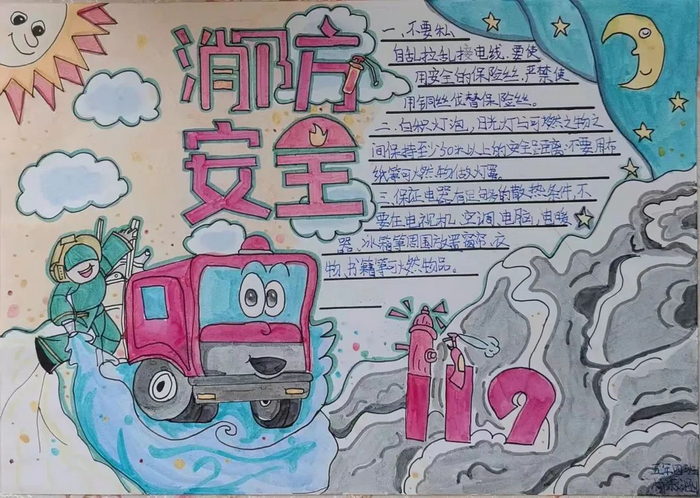 消防
安全
一、不要私
自乱拉乱接电线.要使
用安全的保险丝,严禁使
用铜丝代替保险丝。
二、白积灯泡,日光灯与可燃之物之
间保持至少50米以上的安全距离.不要用布
纸等可燃物做灯罩。
三、保证电器有足够的散热条件,不
要在电视机,空调,电脑,电暖
器、冰箱等周围放置窗帘、衣
物、书籍等可燃物品。
119
五年四班